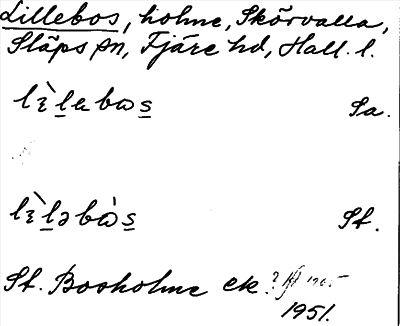 Lillebos, holme, Skörvalla,
Släps sn, Fjäre hd, Hall. l.
lɩ̀lebωs Sa.
lɩ̀ləbὼs St.
St. Bosholme ek ? 1905
1951.